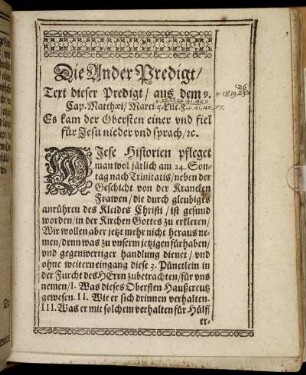 Die Ander Predigt/
Text dieser Predigt / aus dem 9.
Cap. Matthæi/ Marci 5. Luc. 8.
Es kam der Obersten einer vnd fiel
für Jesu nieder vnd sprach/ ꝛc.
DJese Historien pfleget
man wol järlich am 24. Son-
tag nach Trinitatis/ neben der
Geschicht von der Krancken
Frawen/ die durch gleubiges
anrühren des Kleides Christi / ist gesund
worden/ in der Kirchen Gottes zu erkleren/
Wir wollen aber jetzt mehr nicht heraus ne-
men/ denn was zu vnserm jetzigen fürhaben/
vnd gegenwertiger handlung dienet / vnd
ohne weitern eingang diese 3. Pünctlein in
der Furcht des HErrn zubetrachten/ für vns
nemen/ I. Was dieses Obersten Hauß creutz
gewesen. II. Wie er sich drinnen verhalten.
III. Was er mit solchem verhalten für Hülff
er-